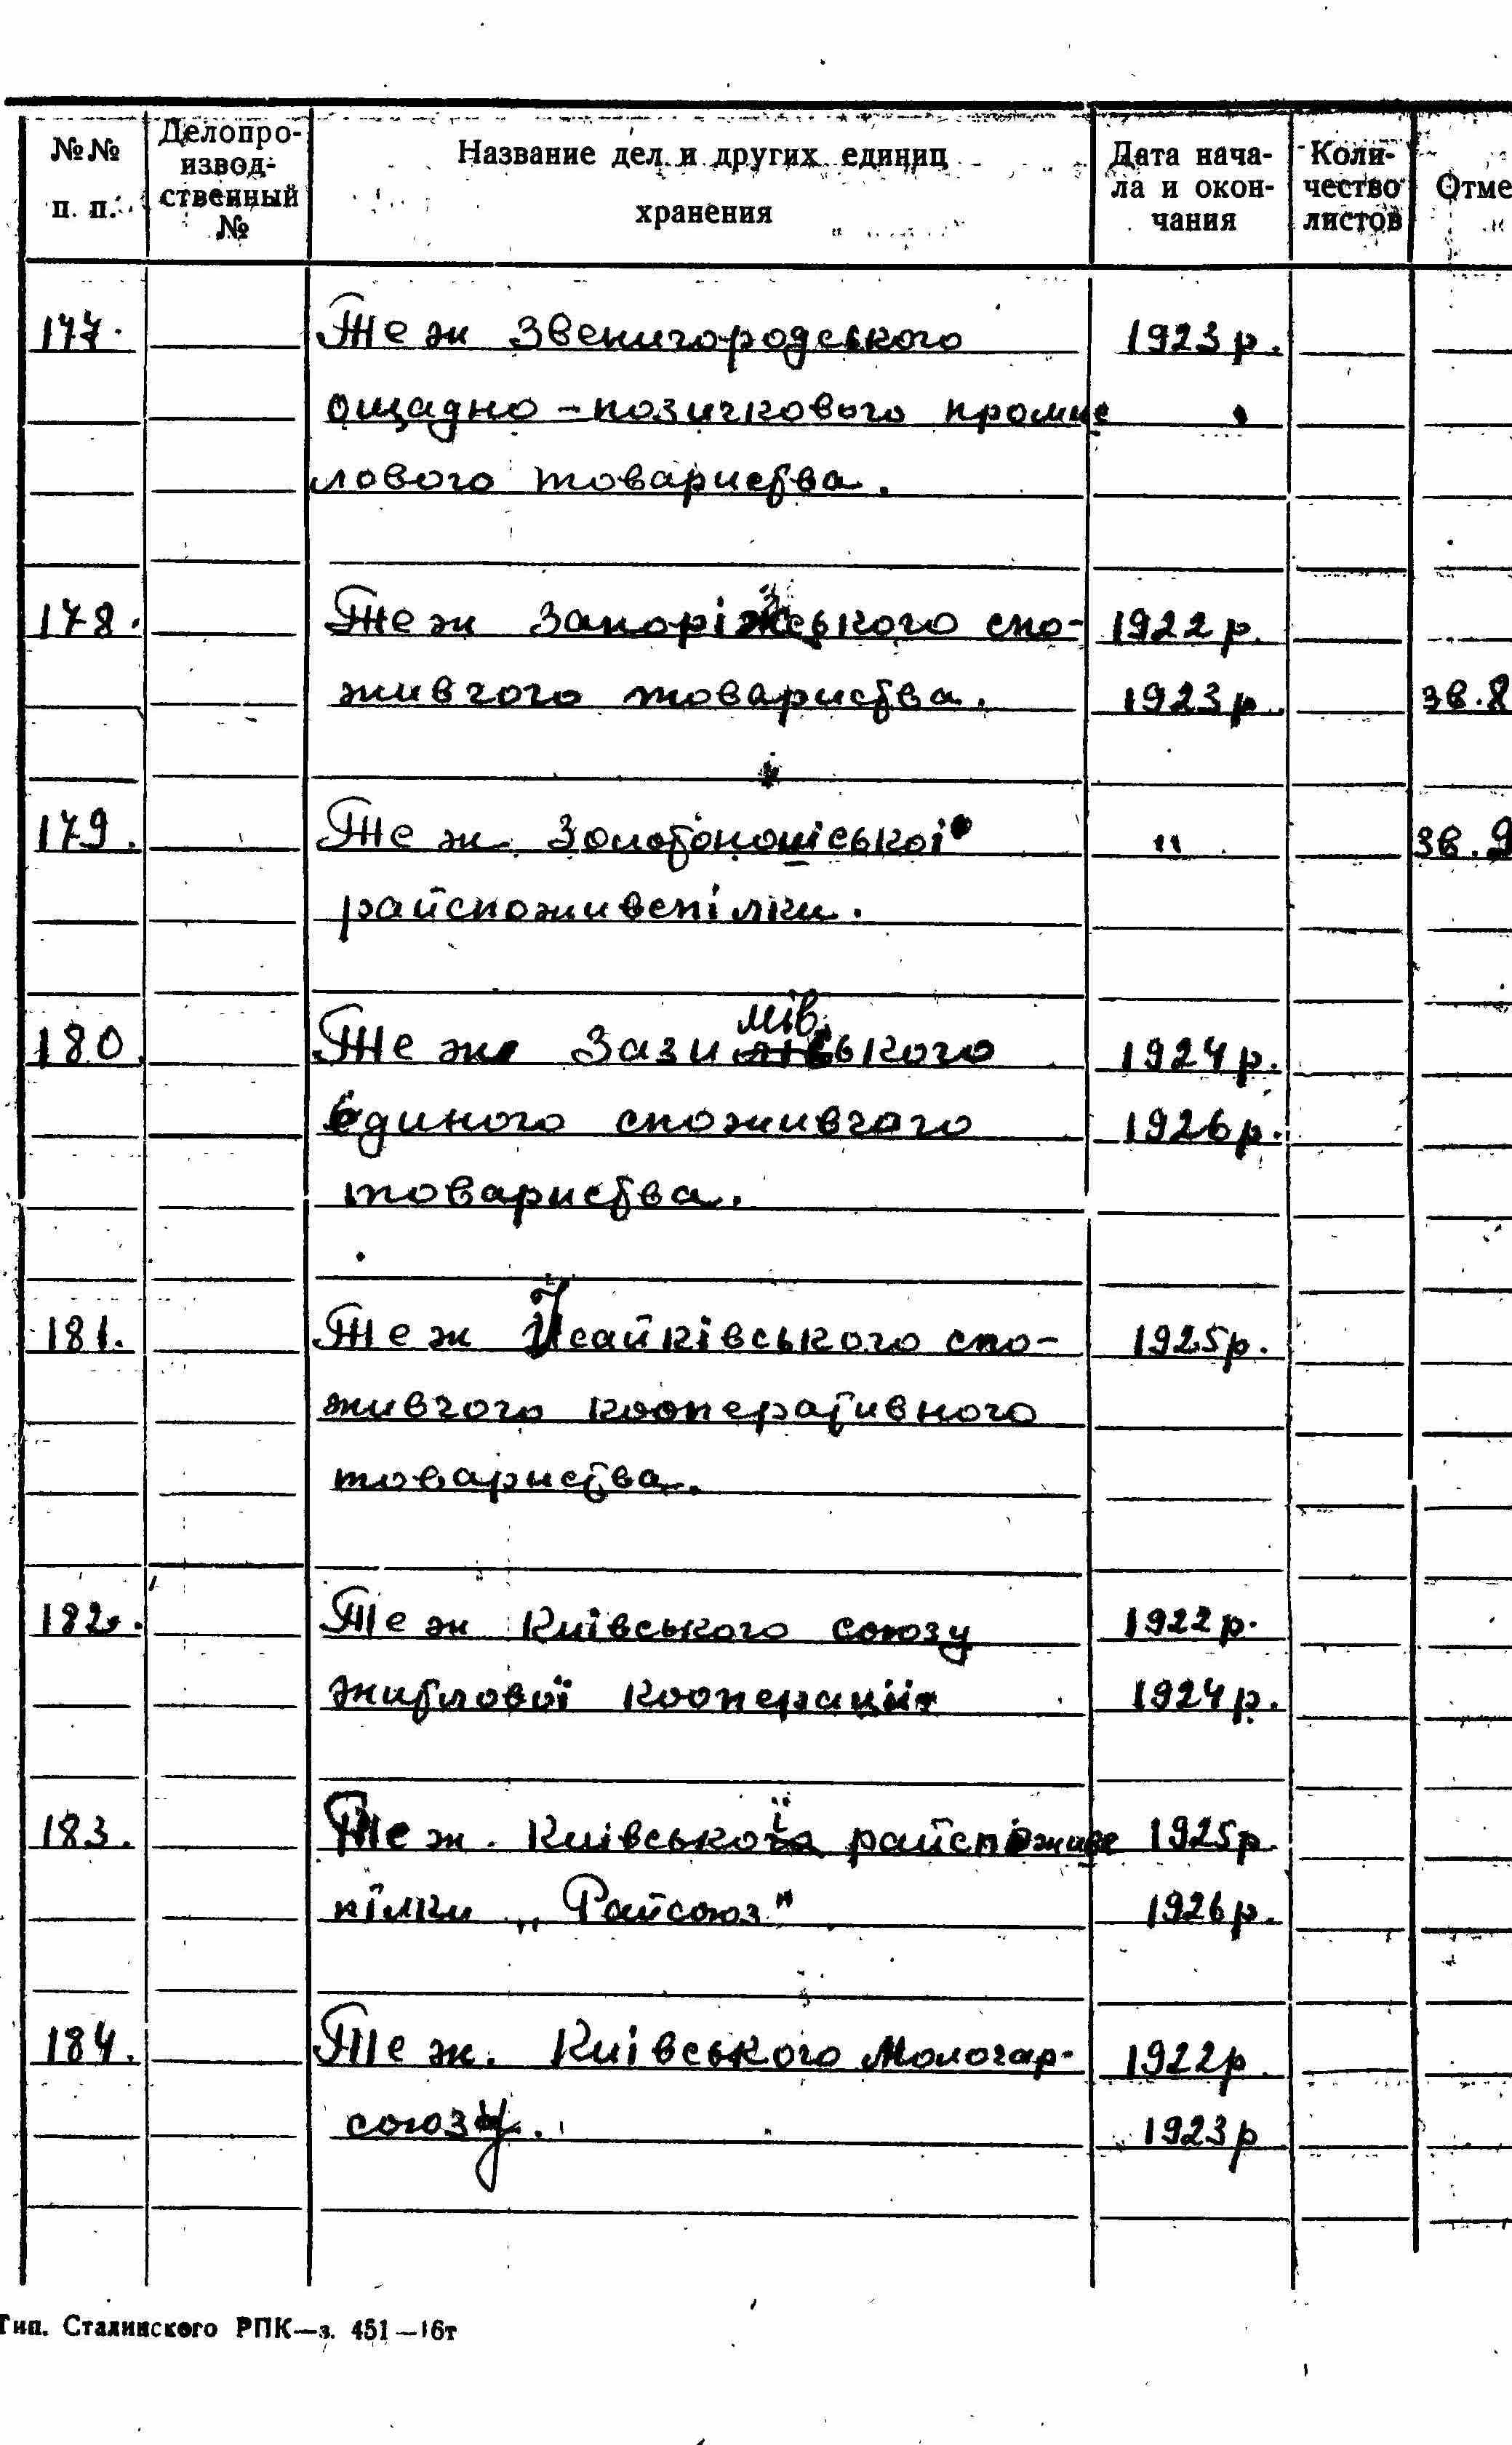 №№ п. п. Делопро-извод-ственный № Название дел и других единиц хранения Дата нача-ла и окон-чания Коли-чество листов Отме
177. Теж Звенигородського 1923 р.
ощадно-позичкового промис
лового товариства.
178. Теж Запорізського спо- 1922 р.
живчого товариства. 1923 р. зв. 8
179. Теж Золотоношіської " зв. 9
райспоживспілки.
180. Теж Зазимівського 1924 р.
єдиного споживчого 1926 р.
товариства.
181. Теж Ісайківського спо- 1925 р.
живчого кооперативного
товариства.
182. Теж Київського союзу 1922 р.
житлової кооперації 1924 р.
183. Теж. Київської райспоживс 1925 р.
пілки „Райсоюз" 1926 р.
184. Теж. Київського Молочар- 1922 р.
союзу. 1923 р
Тип. Сталинского РПК—з. 451—16т